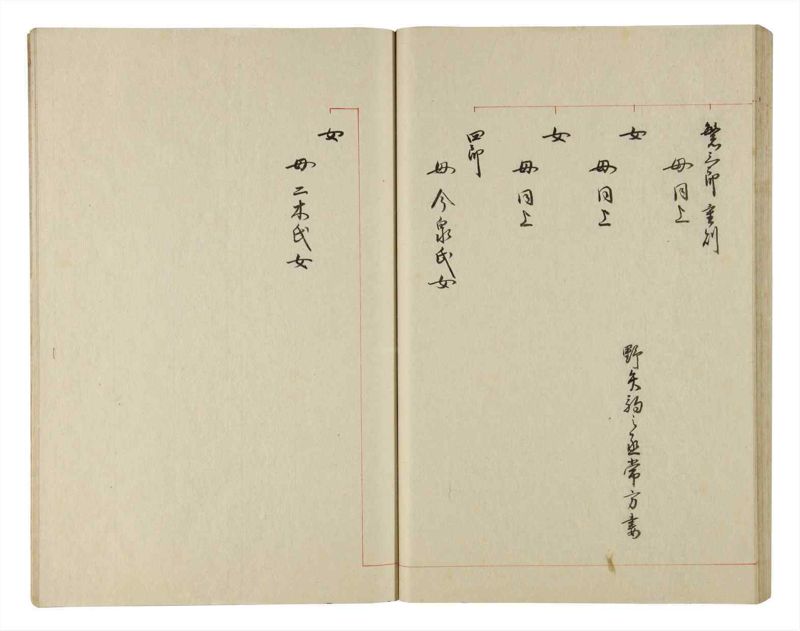 繁三郎 重列
母同上
女
野矢䄂之丞常方妻
母同上
女
母同上
四郎
母今泉氏女
女
母二木氏女